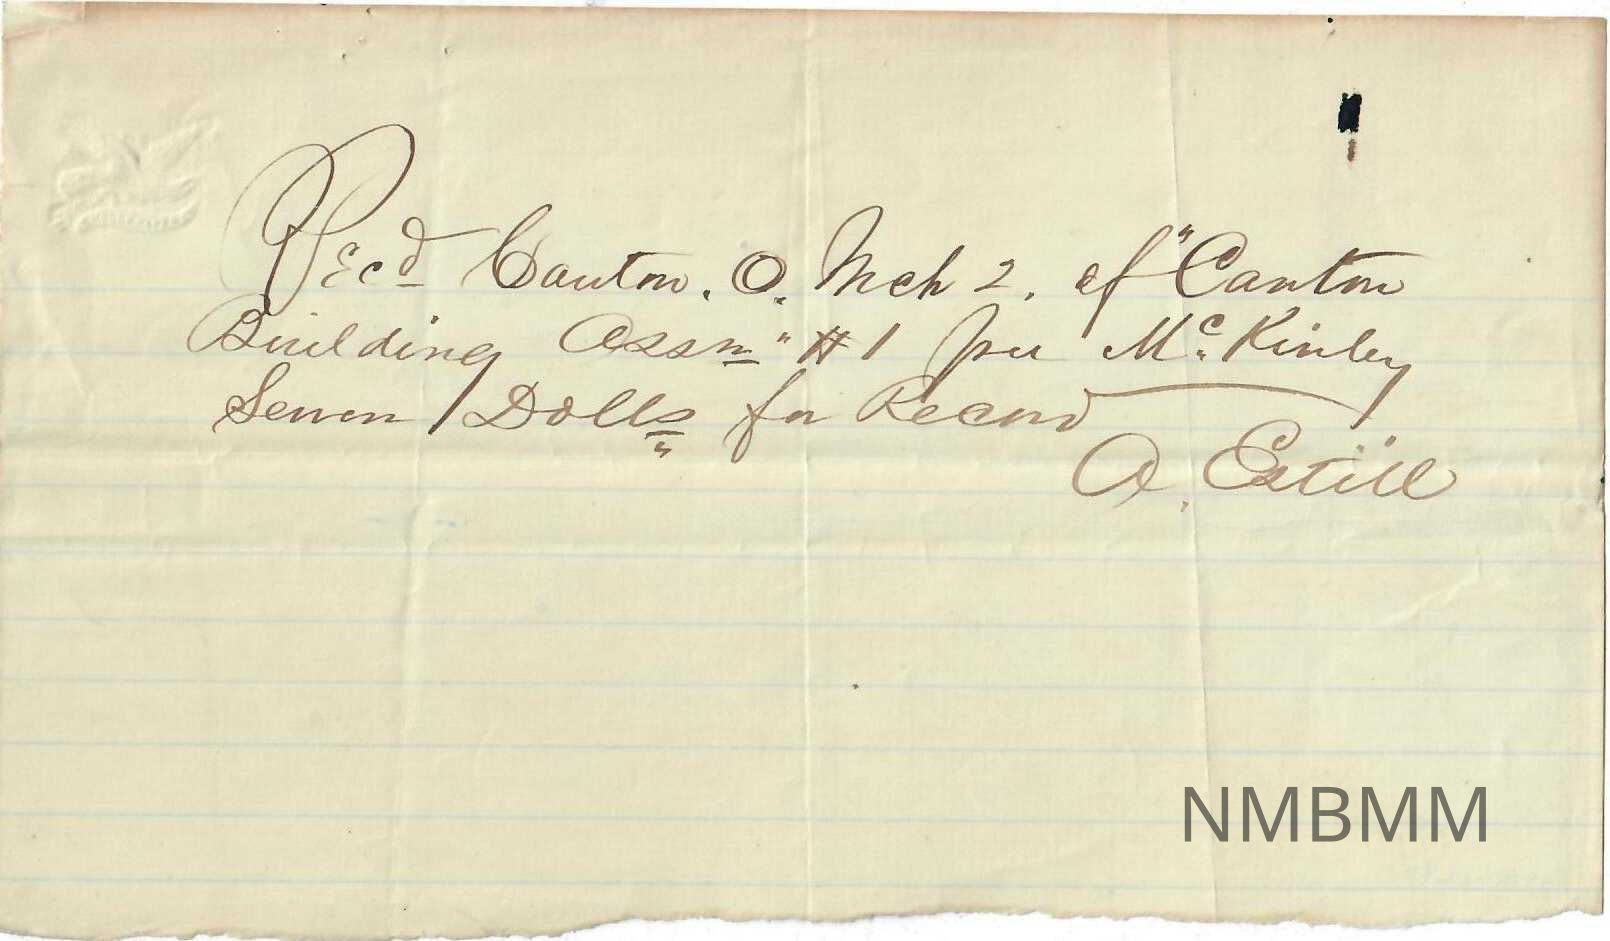 Recd Canton. O. Mch 2. of "Canton
Building Assn" #1 per McKinley
Seven Dolls for Record
A. Estill
NMBMM